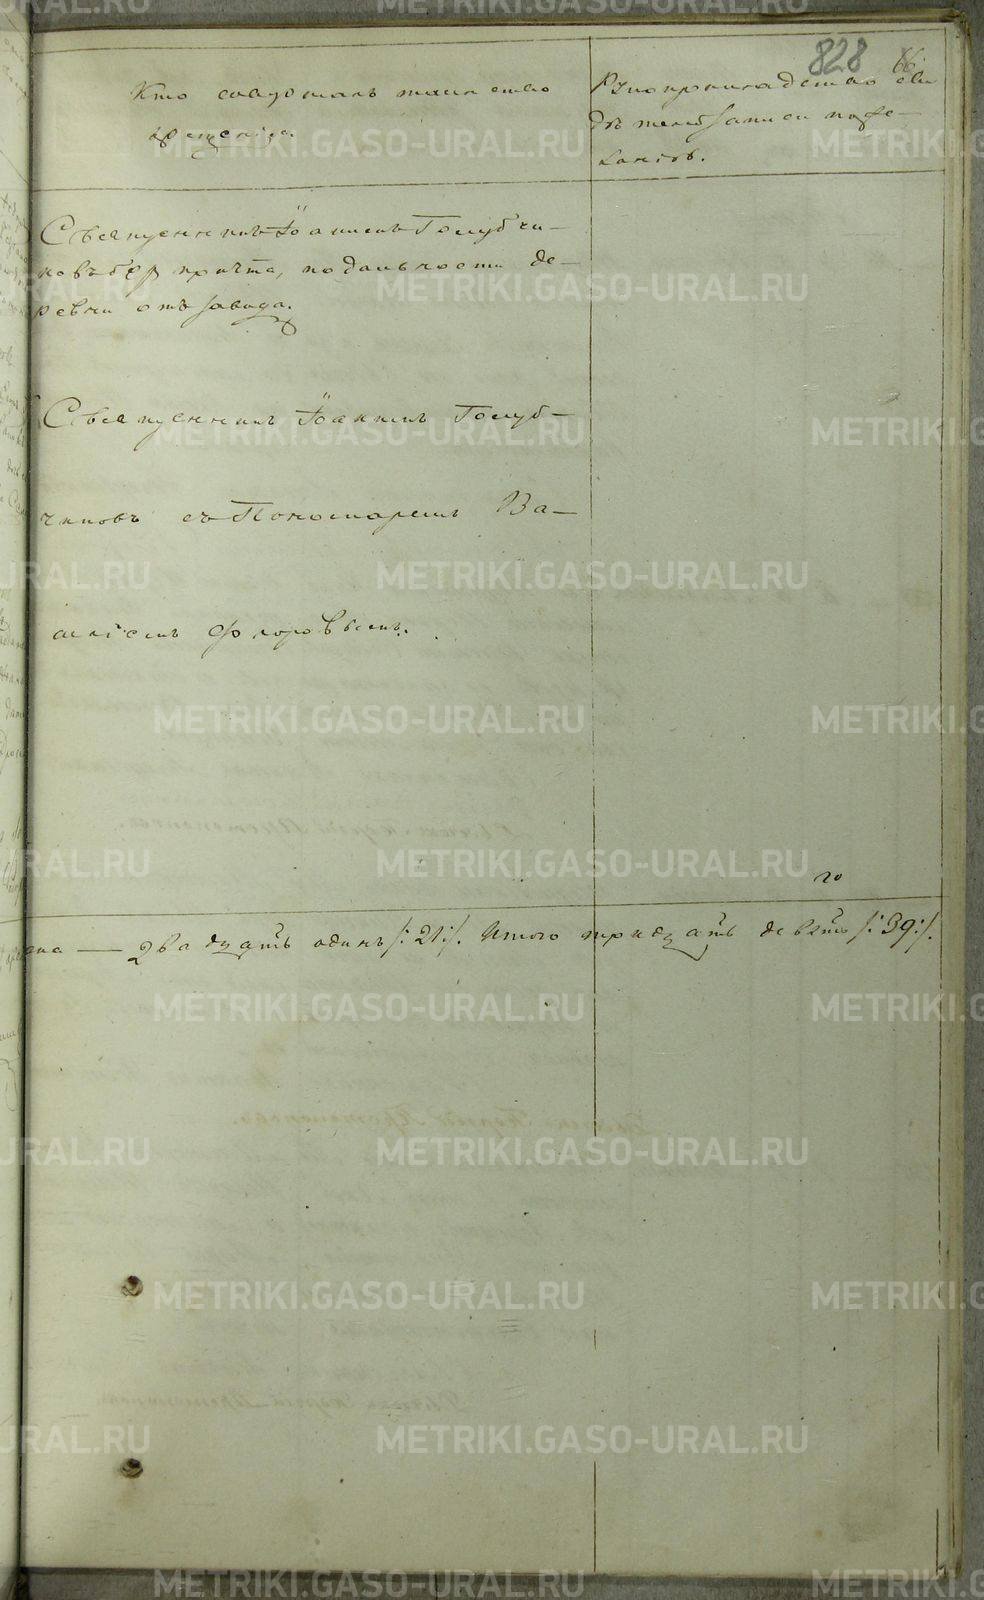 828 66.
Кто совершалъ таинство
крещенія.
Рукоприкладство сви
дѣтелей записи по же-
ланію.
Священникъ Іоаннъ Голубчи-
ковъ безъ причта, по дальности де-
ревни отъ завода.
Священникъ Іоаннъ Голуб-
чиковъ съ Пономаремъ Ва-
силіемъ Флоровымъ.
го
— двадцать одинъ /:21:/. Итого тридцать девять /:39:/.
METRIKI.GASO-URAL.RU